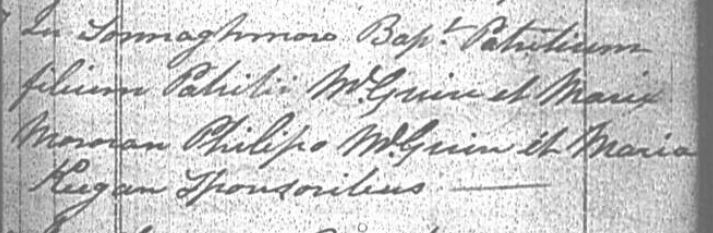 In Tonnaghmore Bapt. Patritium
filium Patritii McGuire et Mariæ
Moroan Philipo McGuin et Maria
Keegan Sponsoribus